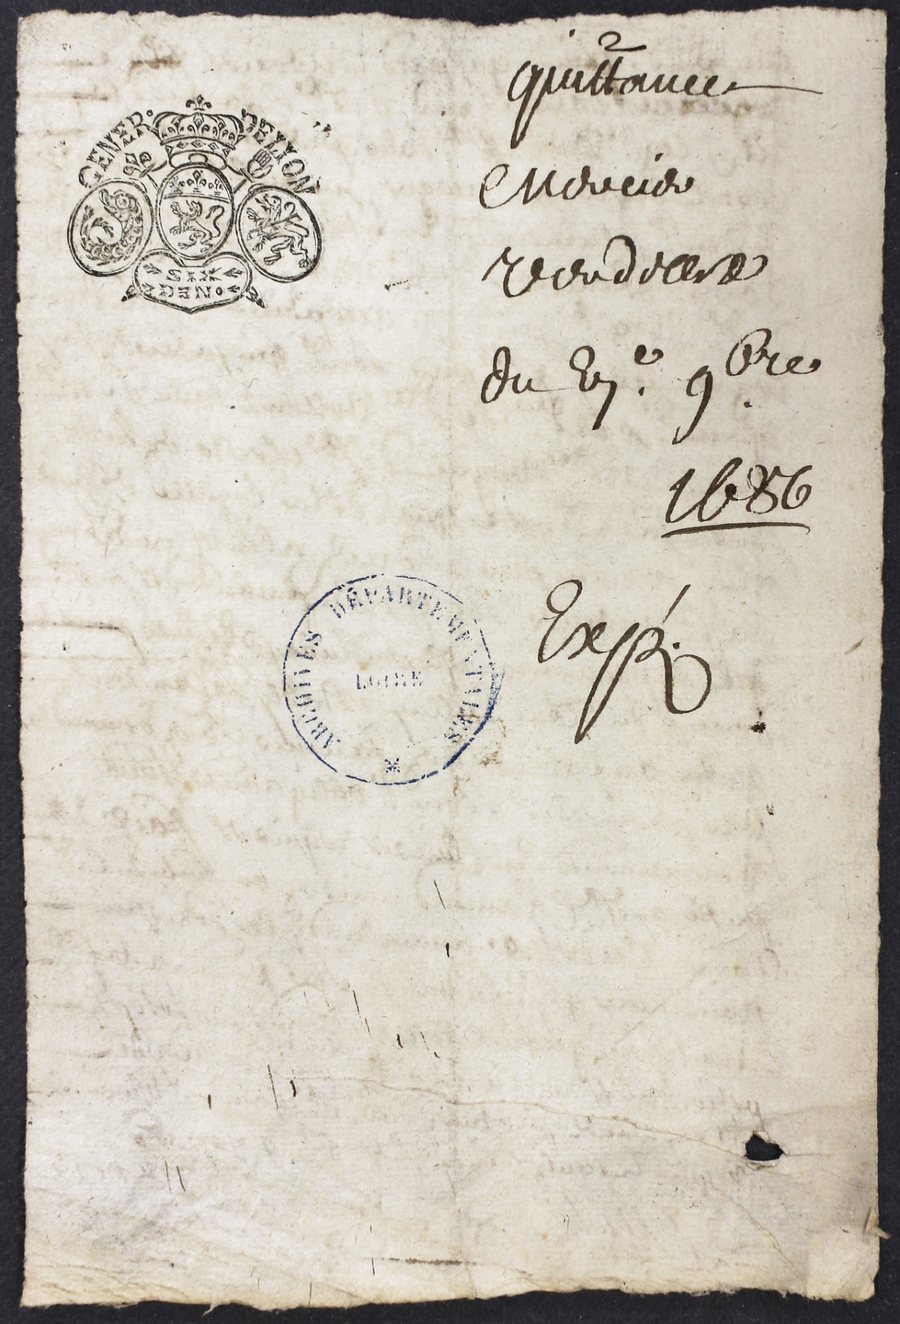 GENER. DE LION
SIX
DEN.
quittance
Mercier
du 27e. 9bre
1686
Expé.
ARCHIVES DÉPARTEMENTALES
LOIRE